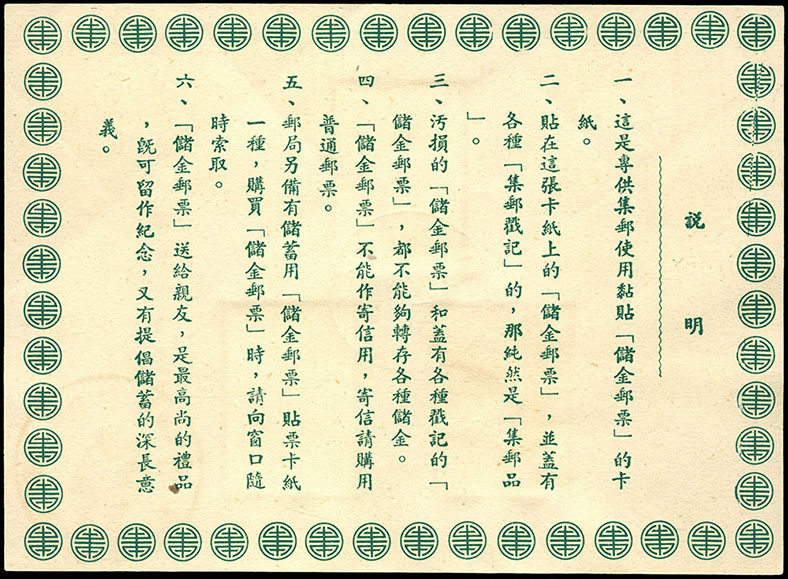 説明
一、這是專供集郵使用黏貼「儲金郵票」的卡
紙。
二、貼在這張卡紙上的「儲金郵票」，並蓋有
各種「集郵戳記」的，那純然是「集郵品
」。
三、污損的「儲金郵票」和蓋有各種戳記的「
儲金郵票」，都不能夠轉存各種儲金。
四、「儲金郵票」不能作寄信用，寄信請購用
普通郵票。
五、郵局另備有儲蓄用「儲金郵票」貼票卡紙
一種，購買「儲金郵票」時，請向窗口隨
時索取。
六、「儲金郵票」送給親友，是最高尚的禮品
，既可留作紀念，又有提倡儲蓄的深長意
義。